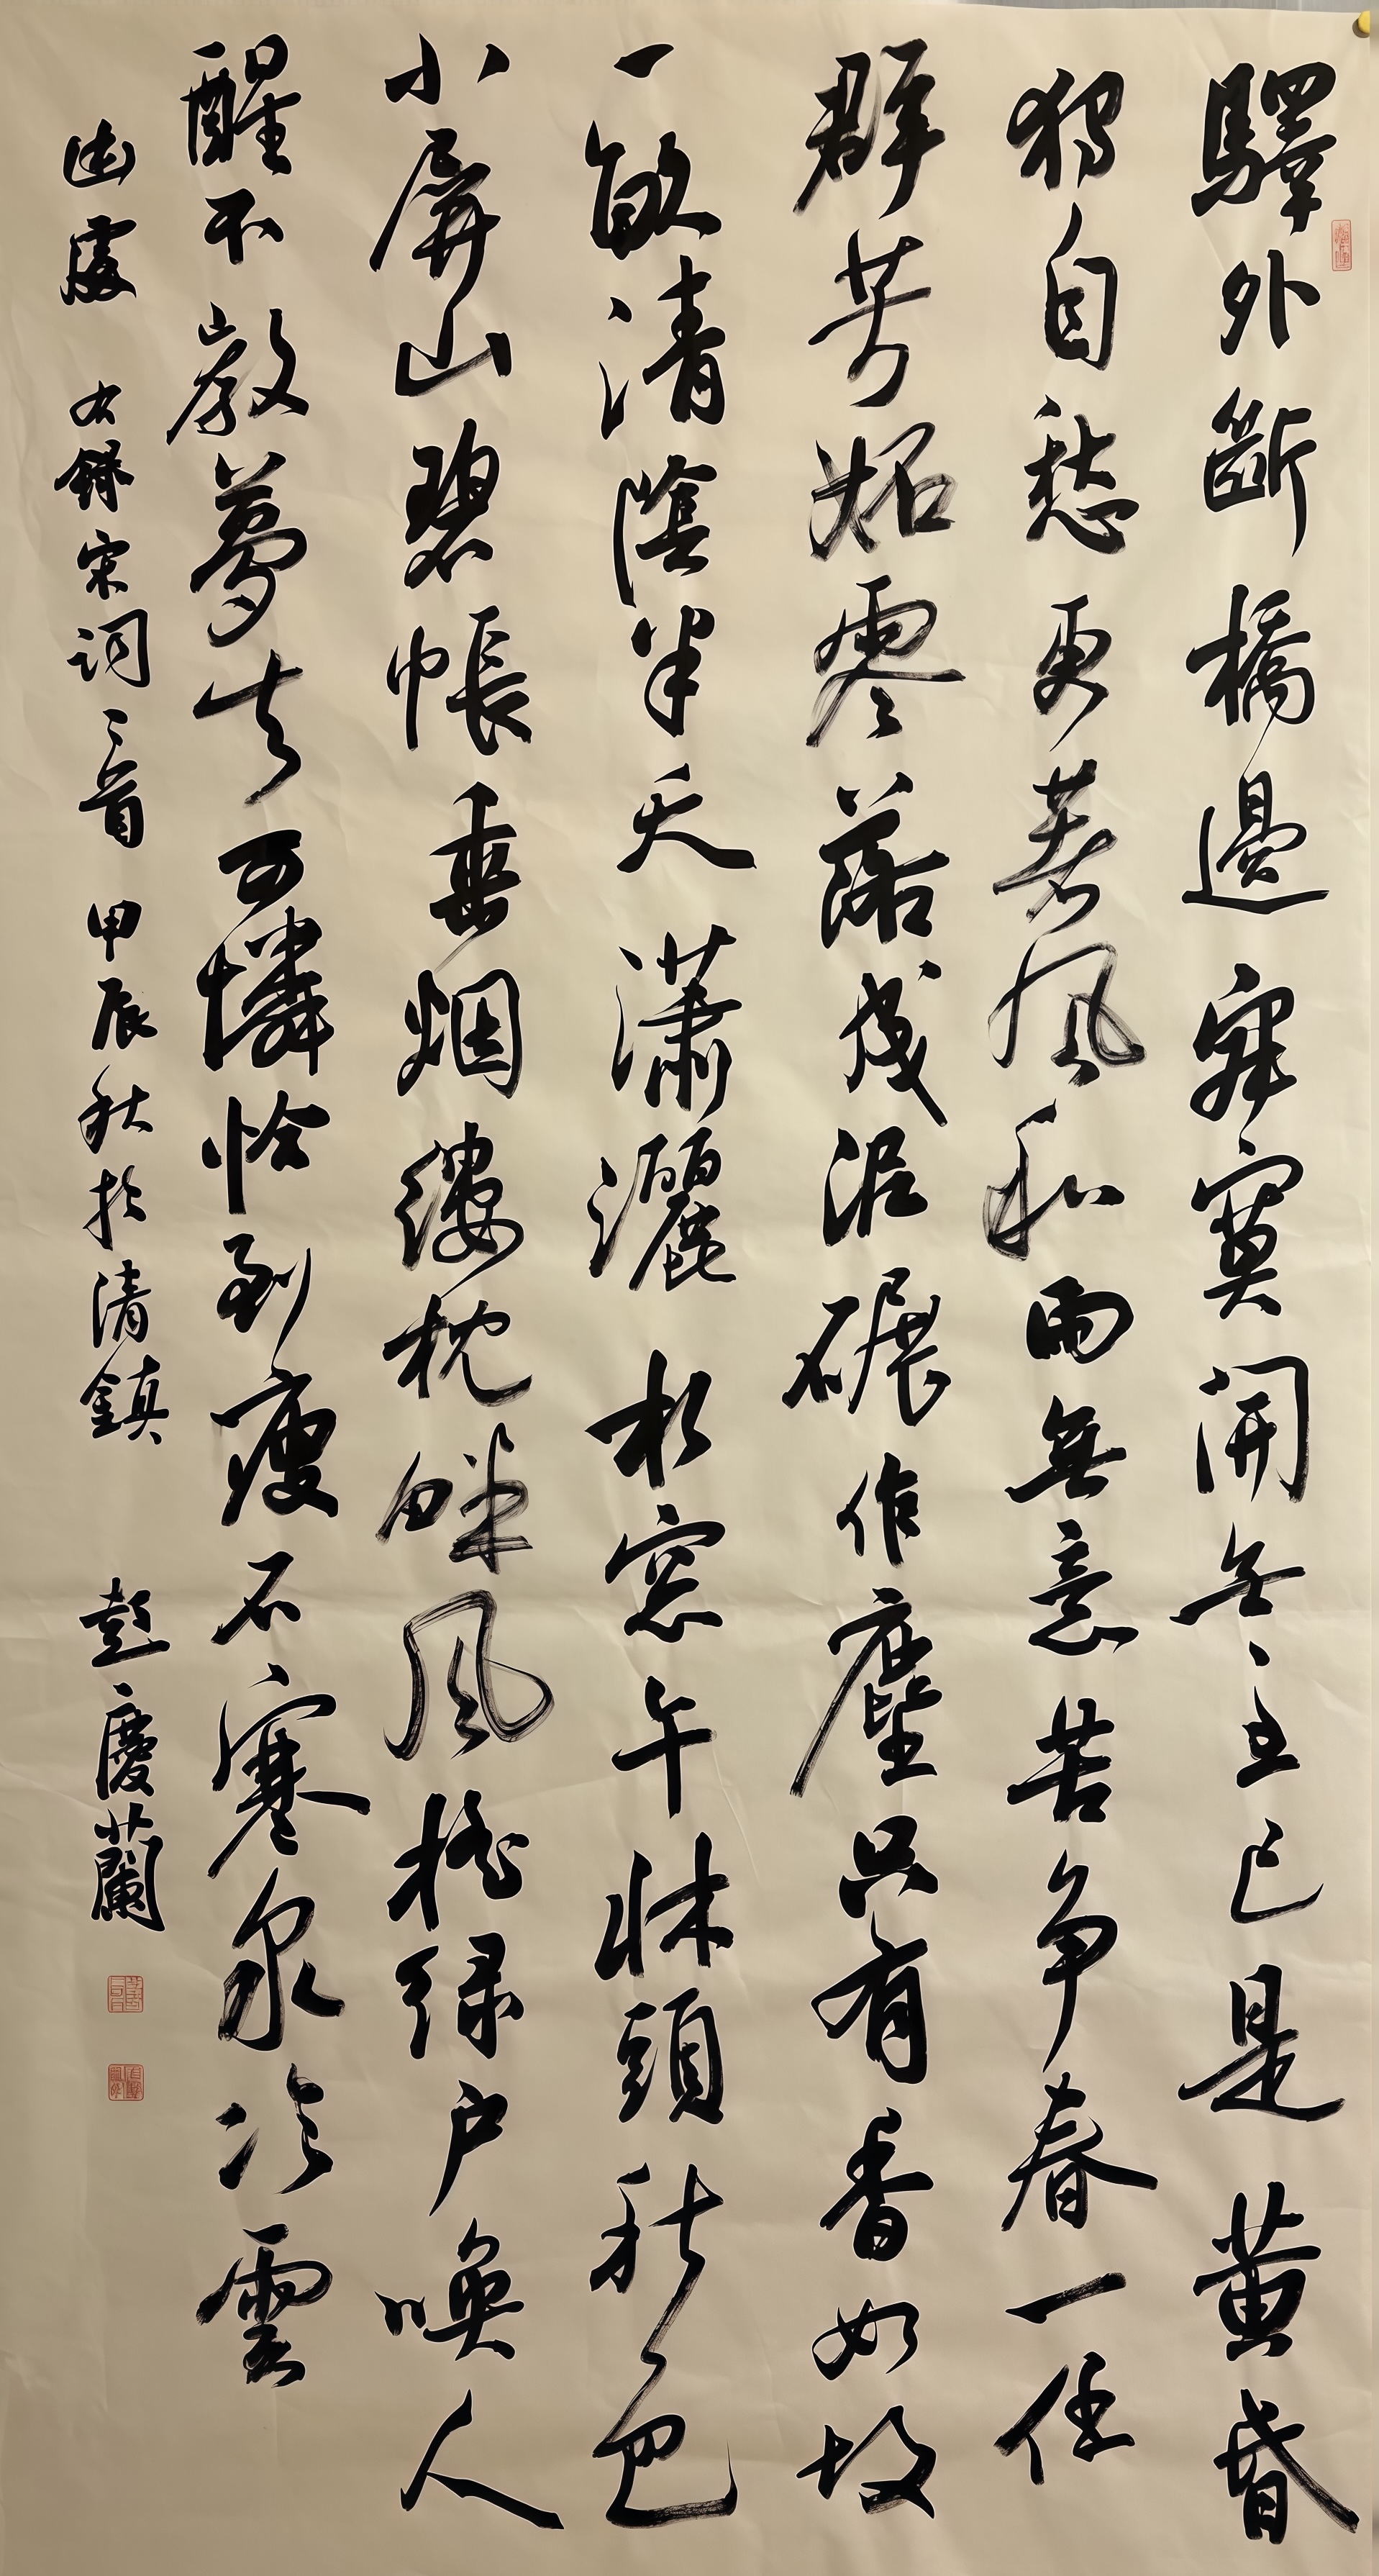 驛外斷橋邊寂寞開無主已是黄昏
獨自愁更著風和雨無意苦争春一任
群芳妬零落成泥碾作塵只有香如故
一畝清陰半天瀟灑松窓午牀頭秋色
小屏山碧帳垂烟縷枕畔風摇緑户唤人
醒不教夢去可憐恰到瘦石寒泉冷雲
幽處 右録宋詞二首 甲辰秋於清鎮 彭慶蘭